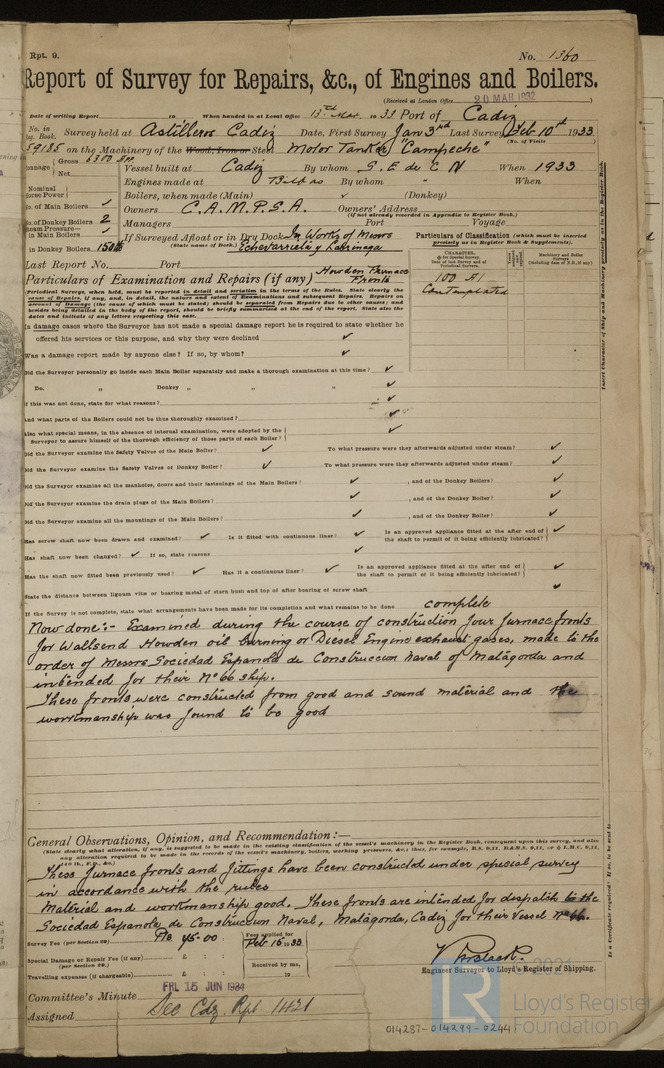 Rpt. 9.
No. 1360
Report of Survey for Repairs, &c., of Engines and Boilers.
(Received at London Office 20 MAR 1932)
Date of writing Report 19 When handed in at Local Office 13th Mar. 1933 Port of Cadiz
No. in Reg. Book. Survey held at Astilleros Cadiz Date, First Survey Jan 3rd Last Survey Feb 10th 1933
59185 on the Machinery of the Wood, Iron or Steel Motor Tanker "Campeche" (No. of Visits )
Gross 6300 Vessel built at Cadiz By whom S. E de C N When 1933
Net
Engines made at By whom " When
Nominal Horse Power
Boilers, when made (Main) ✓ (Donkey)
No. of Main Boilers ✓ Owners C. A. M. P. S. A. Owners' Address
(if not already recorded in Appendix to Register Book.)
No. of Donkey Boilers 2 Managers Port Voyage
Steam Pressure— in Main Boilers ✓ If Surveyed Afloat or in Dry Dock In Works of Messrs
(State name of Dock.) Echevarrieta y Larrinaga
in Donkey Boilers 150 lb
Particulars of Classification (which must be inserted precisely as in Register Book & Supplements).
Last Report No. Port
Particulars of Examination and Repairs (if any) Howden Furnace Fronts
100 A1
Contemplated
Periodical Surveys, when held, must be reported in detail and seriatim in the terms of the Rules. State clearly the
cause of Repairs, if any, and, in detail, the nature and extent of Examinations and subsequent Repairs. Repairs on
account of Damage (the cause of which must be stated) should be separated from Repairs due to other causes; and
besides being detailed in the body of the report, should be briefly summarised at the end of the report. State also the
dates and initials of any letters respecting this case.
In damage cases where the Surveyor has not made a special damage report he is required to state whether he
offered his services or this purpose, and why they were declined ✓
Was a damage report made by anyone else? If so, by whom? ✓
Did the Surveyor personally go inside each Main Boiler separately and make a thorough examination at this time? ✓
Do. " Donkey " " " ✓
If this was not done, state for what reasons? ✓
And what parts of the Boilers could not be thus thoroughly examined? ✓
Also what special means, in the absence of internal examination, were adopted by the
Surveyor to assure himself of the thorough efficiency of those parts of each Boiler? ✓
Did the Surveyor examine the Safety Valves of the Main Boiler? ✓ To what pressure were they afterwards adjusted under steam? ✓
Did the Surveyor examine the Safety Valves of Donkey Boiler? ✓ To what pressure were they afterwards adjusted under steam? ✓
Did the Surveyor examine all the manholes, doors and their fastenings of the Main Boilers? ✓ , and of the Donkey Boilers? ✓
Did the Surveyor examine the drain plugs of the Main Boilers? ✓ , and of the Donkey Boiler? ✓
Did the Surveyor examine all the mountings of the Main Boilers? ✓ , and of the Donkey Boiler? ✓
Has screw shaft now been drawn and examined? ✓ Is it fitted with continuous liner? ✓ Is an approved appliance fitted at the after end of
the shaft to permit of it being efficiently lubricated? ✓
Has shaft now been changed? ✓ If so, state reasons ✓
Has the shaft now fitted been previously used? ✓ Has it a continuous liner? ✓ Is an approved appliance fitted at the after end of
the shaft to permit of it being efficiently lubricated? ✓
State the distance between lignum vitæ or bearing metal of stern bush and top of after bearing of screw shaft ✓
If the Survey is not complete, state what arrangements have been made for its completion and what remains to be done complete
Now done:- Examined during the course of construction four furnace fronts
for Wallsend Howden oil burning or Diesel Engine exhaust gases, made to the
order of Messrs Sociedad Espanola de Construccion Naval of Matagorda and
intended for their No 66 ship.
These fronts were constructed from good and sound material and the
workmanship was found to be good
General Observations, Opinion, and Recommendation:—
(State clearly what alteration, if any, is suggested to be made in the existing classification of the vessel's machinery in the Register Book, consequent upon this survey, and also
any alteration required to be made in the records of the vessel's machinery, boilers, working pressures, &c.; thus, for example, B.S. 9,11, B.&M.S. 9,11, or L.M.C. 9,11,
These furnace fronts and fittings have been constructed under special survey
in accordance with the rules
Material and workmanship good. These fronts are intended for despatch to the
Sociedad Espanola de Construccion Naval, Matagorda, Cadiz for their vessel No 66.
Survey Fee (per Section 29) Pts 45-00 Fees applied for Feb 16 1933
Special Damage or Repair Fee (if any) (per Section 29.) £ : : Received by me,
Travelling expenses (if chargeable) £ : : 19
Engineer Surveyor to Lloyd's Register of Shipping.
Committee's Minute FRI. 15 JUN 1934
Assigned See Cdz. Rpt. 1421
Insert Character of Ship and Machinery precisely as in the Register Book.
© 2021
LR Lloyd's Register
Foundation
014287-014299-0244